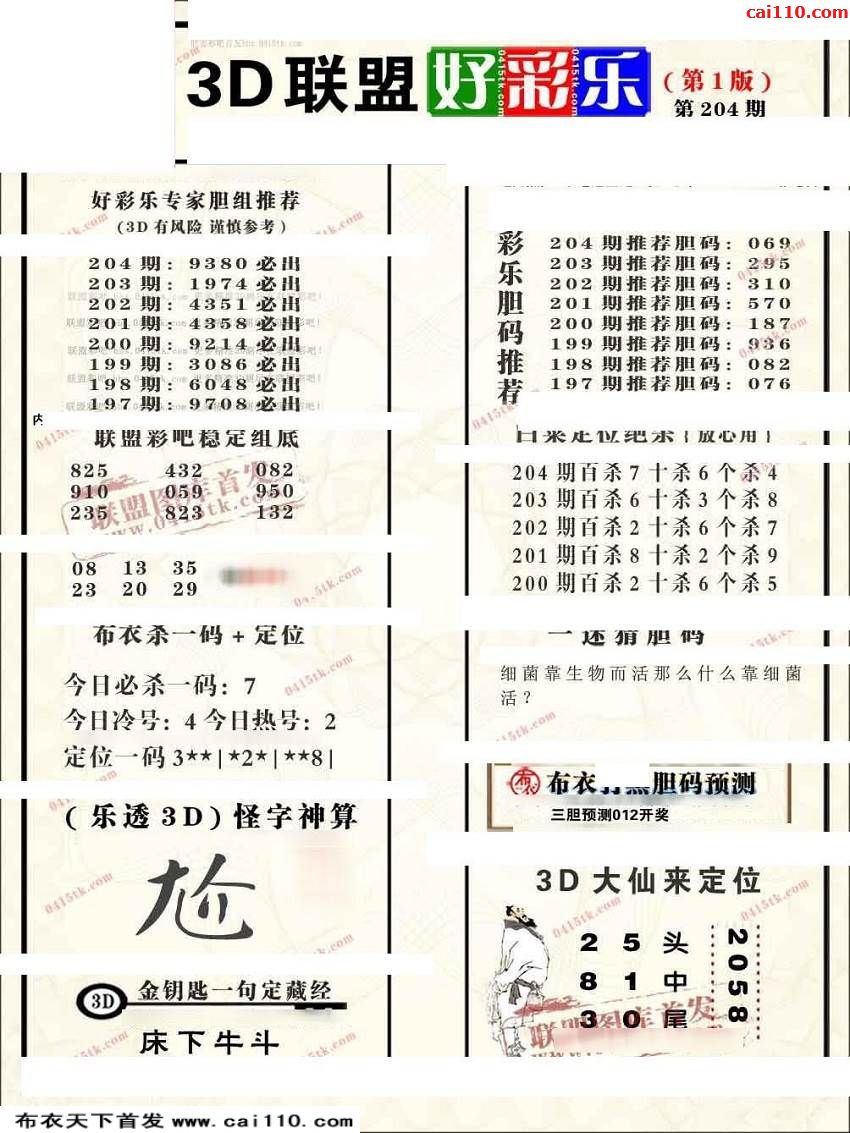 cai110.com
3D联盟好彩乐(第1版)
第204期
好彩乐专家胆组推荐
(3D有风险 谨慎参考)
204期: 9380必出
203期: 1974必出
202期: 4351必出
201期: 4358必出
200期: 9214必出
199期: 3086必出
198期: 6048必出
197期: 9708必出
联盟彩吧稳定组底
825 432 082
910 059 950
235 823 132
联盟图库首发
www.0415tk.com
08 13 35
23 20 29
布衣杀一码+定位
今日必杀一码: 7
今日冷号: 4 今日热号: 2
定位一码 3**|*2*|**8|
(乐透3D)怪字神算
尬
3D 金钥匙一句定藏经
床下牛斗
彩乐胆码推荐
204期推荐胆码: 069
203期推荐胆码: 295
202期推荐胆码: 310
201期推荐胆码: 570
200期推荐胆码: 187
199期推荐胆码: 936
198期推荐胆码: 082
197期推荐胆码: 076
204期百杀7十杀6个杀4
203期百杀6十杀3个杀8
202期百杀2十杀6个杀7
201期百杀8十杀2个杀9
200期百杀2十杀6个杀5
一迷猜胆码
细菌靠生物而活那么什么靠细菌
活?
三胆预测012开奖
3D大仙来定位
2 5 头
8 1 中
3 0 尾
2058
联盟图库首发
布衣天下首发 www.cai110.com